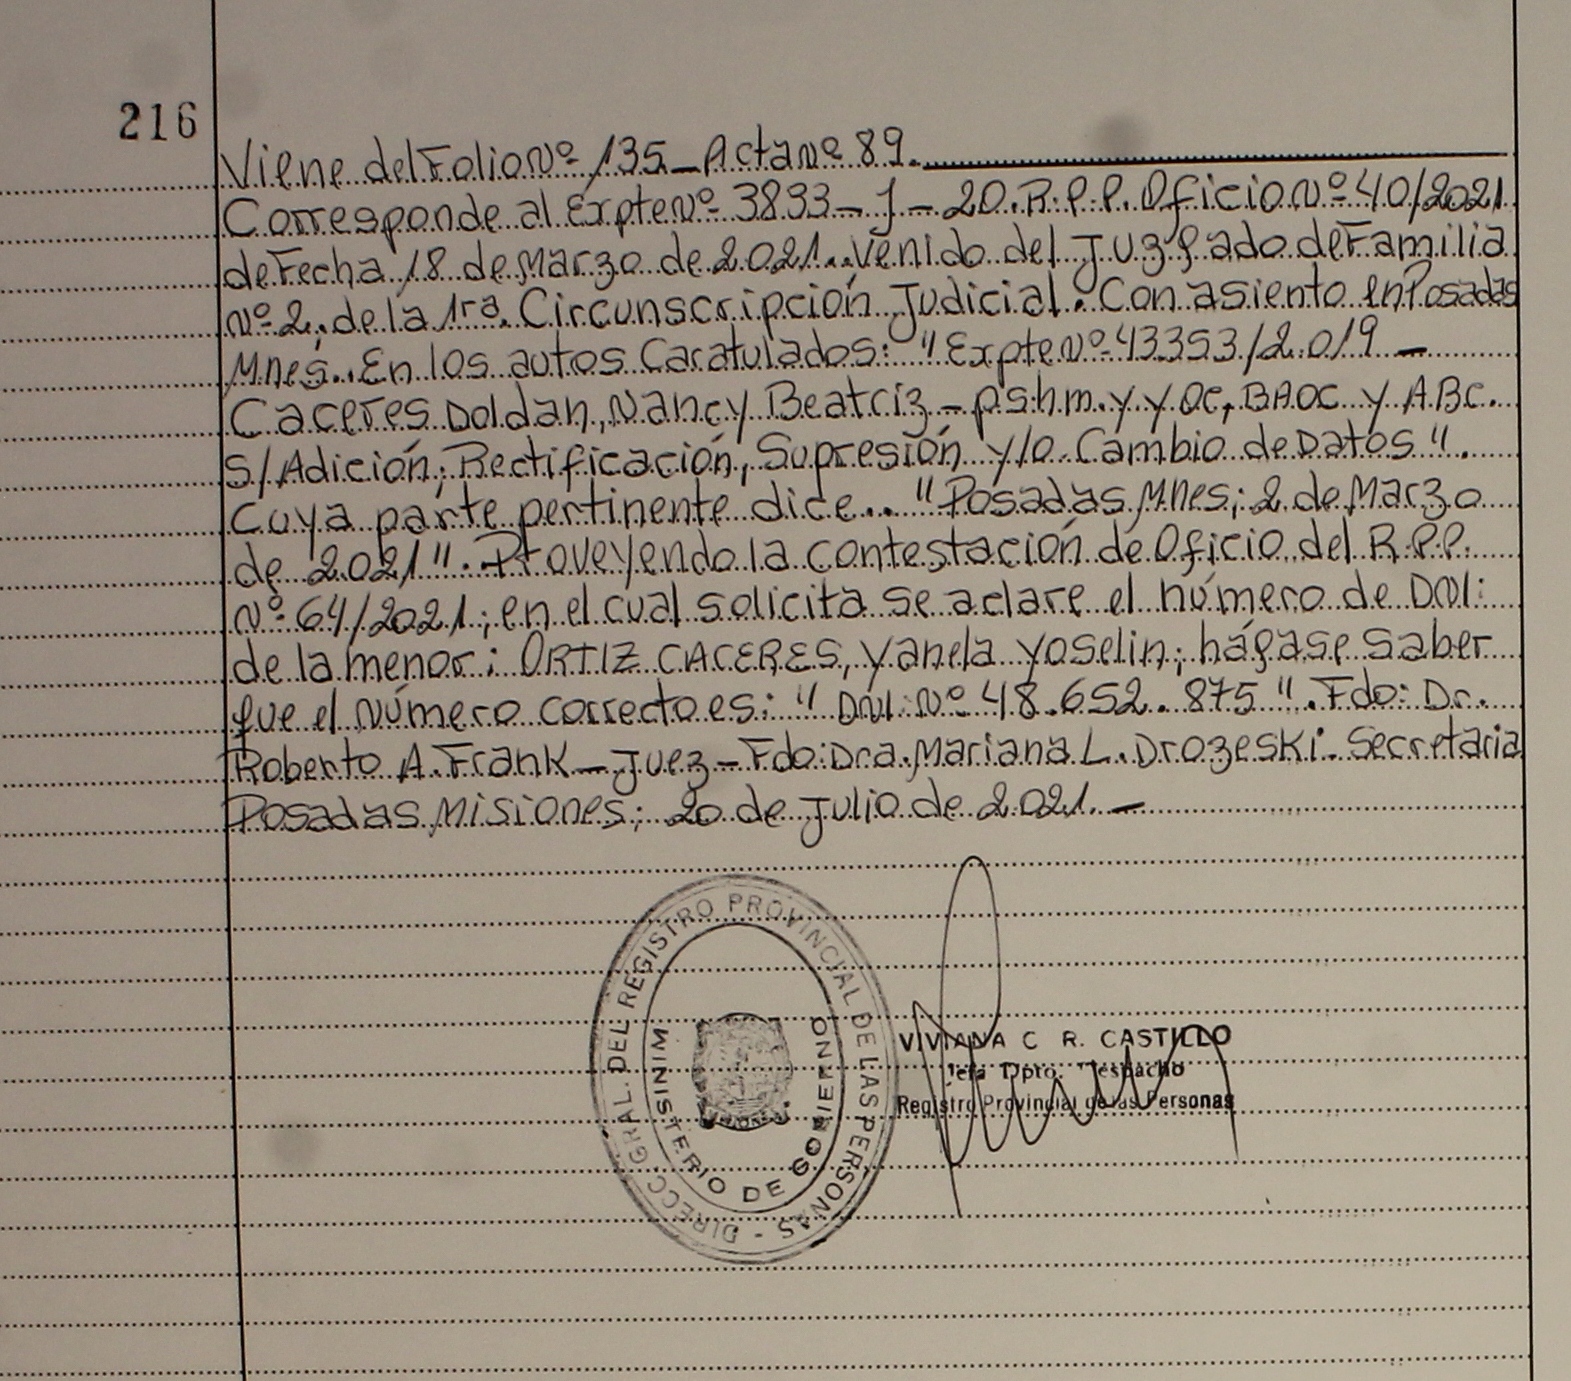 216
Viene del Folio Nº 135 - Acta Nº 89.
Corresponde al Expte Nº 3893 - J - 20. R.P.P. Oficio Nº 40/2021
de Fecha 18 de Marzo de 2.021.. Venido del Juzgado de Familia
Nº 2, de la 1ra. Circunscripción Judicial. Con asiento en Posadas
Mnes.. En los autos Caratulados: "Expte Nº 43353/2.019 -
Caceres Doldan, Nancy Beatriz - p.s.h.m. y.y.OC, BAOC y ABC.
S/Adición, Rectificación, Supresión y/o Cambio de Datos".
Cuya parte pertinente dice.. "Posadas, Mnes; 2 de Marzo
de 2.021". Proveyendo la contestación de Oficio del R.P.P.
Nº 64/2021; en el cual solicita se aclare el número de DNI:
de la menor: ORTIZ CACERES, Yanela Yoselin; hágase saber
que el Número correcto es: "DNI: Nº 48.652.875". Fdo: Dr.
Roberto A. Frank - Juez - Fdo: Dra. Mariana L. Drozeski - Secretaria
Posadas, Misiones; 20 de Julio de 2.021. -
DIRECC. GRAL. DEL REGISTRO PROVINCIAL DE LAS PERSONAS -
MINISTERIO DE GOBIERNO
VIVIANA C R. CASTILLO
Jefa Dpto. Despacho
Registro Provincial de las Personas